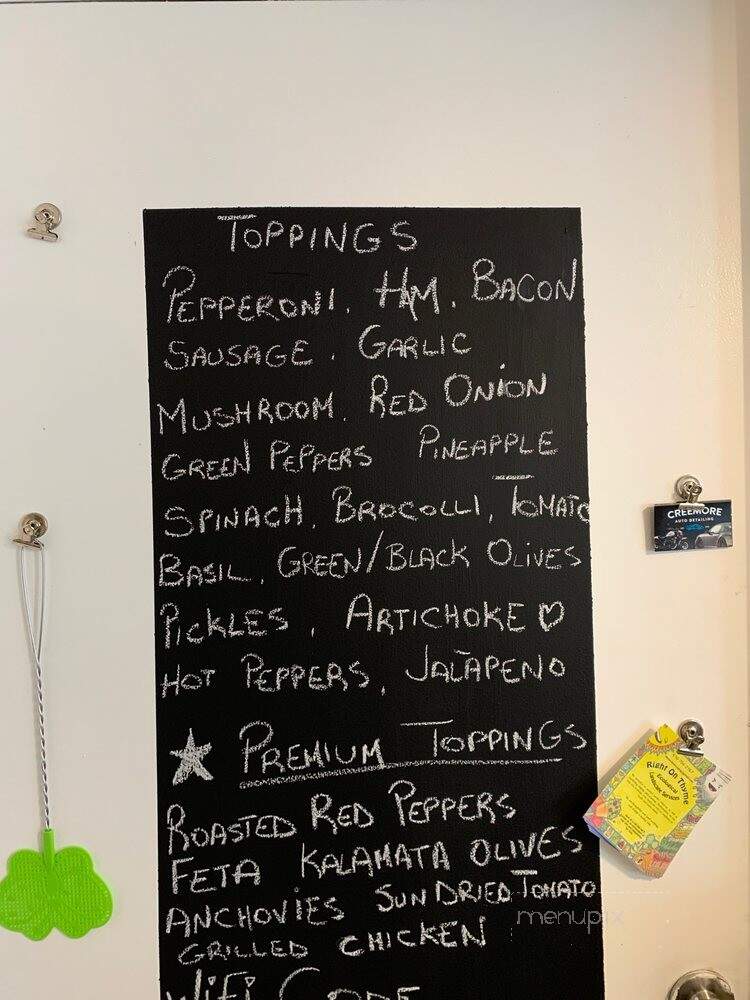 TOPPINGS
PEPPERONI. HAM. BACON
SAUSAGE. GARLIC
MUSHROOM. RED ONION
GREEN PEPPERS PINEAPPLE
SPINACH, BROCOLLI, TOMATO
BASIL, GREEN/BLACK OLIVES
PICKLES, ARTICHOKE ♡
HOT PEPPERS, JALAPENO
★ PREMIUM TOPPINGS
ROASTED RED PEPPERS
FETA KALAMATA OLIVES
ANCHOVIES SUNDRIED TOMATO
GRILLED CHICKEN
WIFI CODE
CREEMORE
AUTO DETAILING
Right On Thyme
Ecological
Landscape Services
menupix